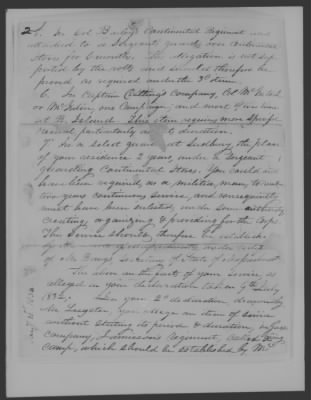 2
5. In Col Baily's Continental Regiment and
attached to a Sergeant guard over continental
stores for 6 months. This allegation is not sup-
ported by the rolls and should therefore be
proved as required under the 3d item
6. In Captain Cutting's Company, Col McIntosh
or one Campaign, and most of in time
at R. Island. This item requires more specifi-
cation particularly as to duration.
7. In a select guard at Sudbury, the place
of your residence 2 years, under a Sergeant
guarding Continental Stores. You could not
have been required, as a militia man, to serve
two years continuous service, and consequently
must have been selected under some authority
creating, organizing & providing for the Corps
This Service should therefore be established
by the under certif
of Mr Bangs Secretary of State of Massachusetts.
The above are the facts of your Service as
alleged in your declaration taken 9th July
1832. In your 2d declaration drawn by
Mr you allege an item of service
without stating its period & duration, in
company, Regiment, called
Camp, which should be established by Mr